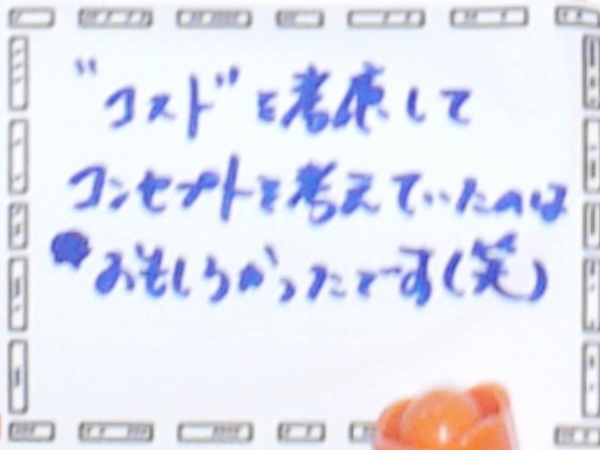 "コスト"を考慮して
コンセプトを考えていたのは
おもしろかったです(笑)